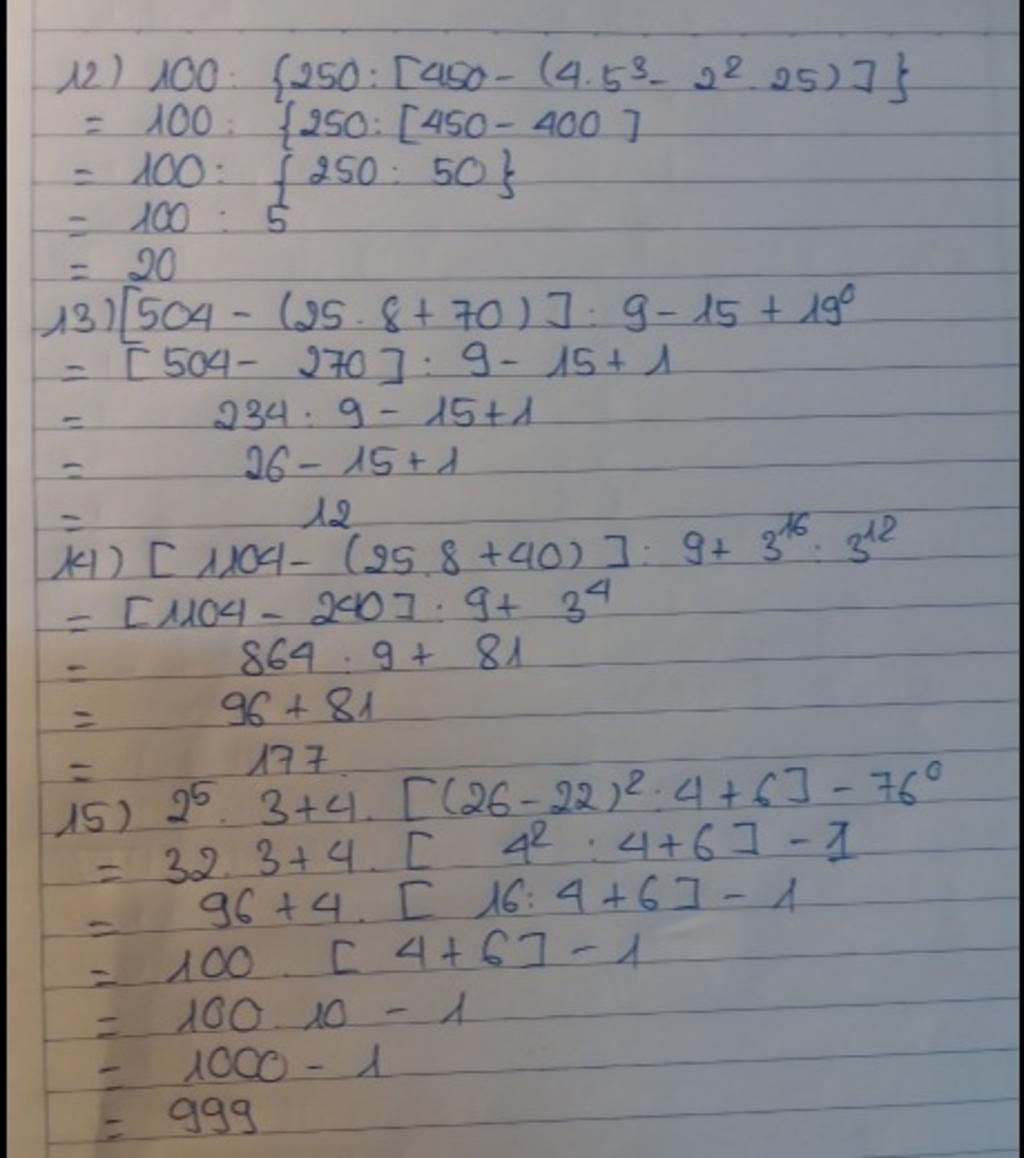 12) 100: {250:[450-(4.5³- 2². 25)]}
= 100: {250:[450-400]
= 100: {250: 50}
= 100 : 5
= 20
13)[504-(25.8+70)]: 9-15+19⁰
= [504- 270]: 9-15+1
= 234: 9-15+1
= 26-15+1
= 12
14) [1104-(25.8+40)]: 9+ 3¹⁶: 3¹²
= [1104-240]: 9+ 3⁴
= 864: 9+ 81
= 96+81
= 177
15) 2⁵. 3+4. [(26-22)²: 4+6]-76⁰
= 32. 3+4. [ 4² : 4+6]-1
= 96+4. [ 16: 4+6]-1
= 100 . [ 4+6]-1
= 100 10 - 1
= 1000 - 1
= 999